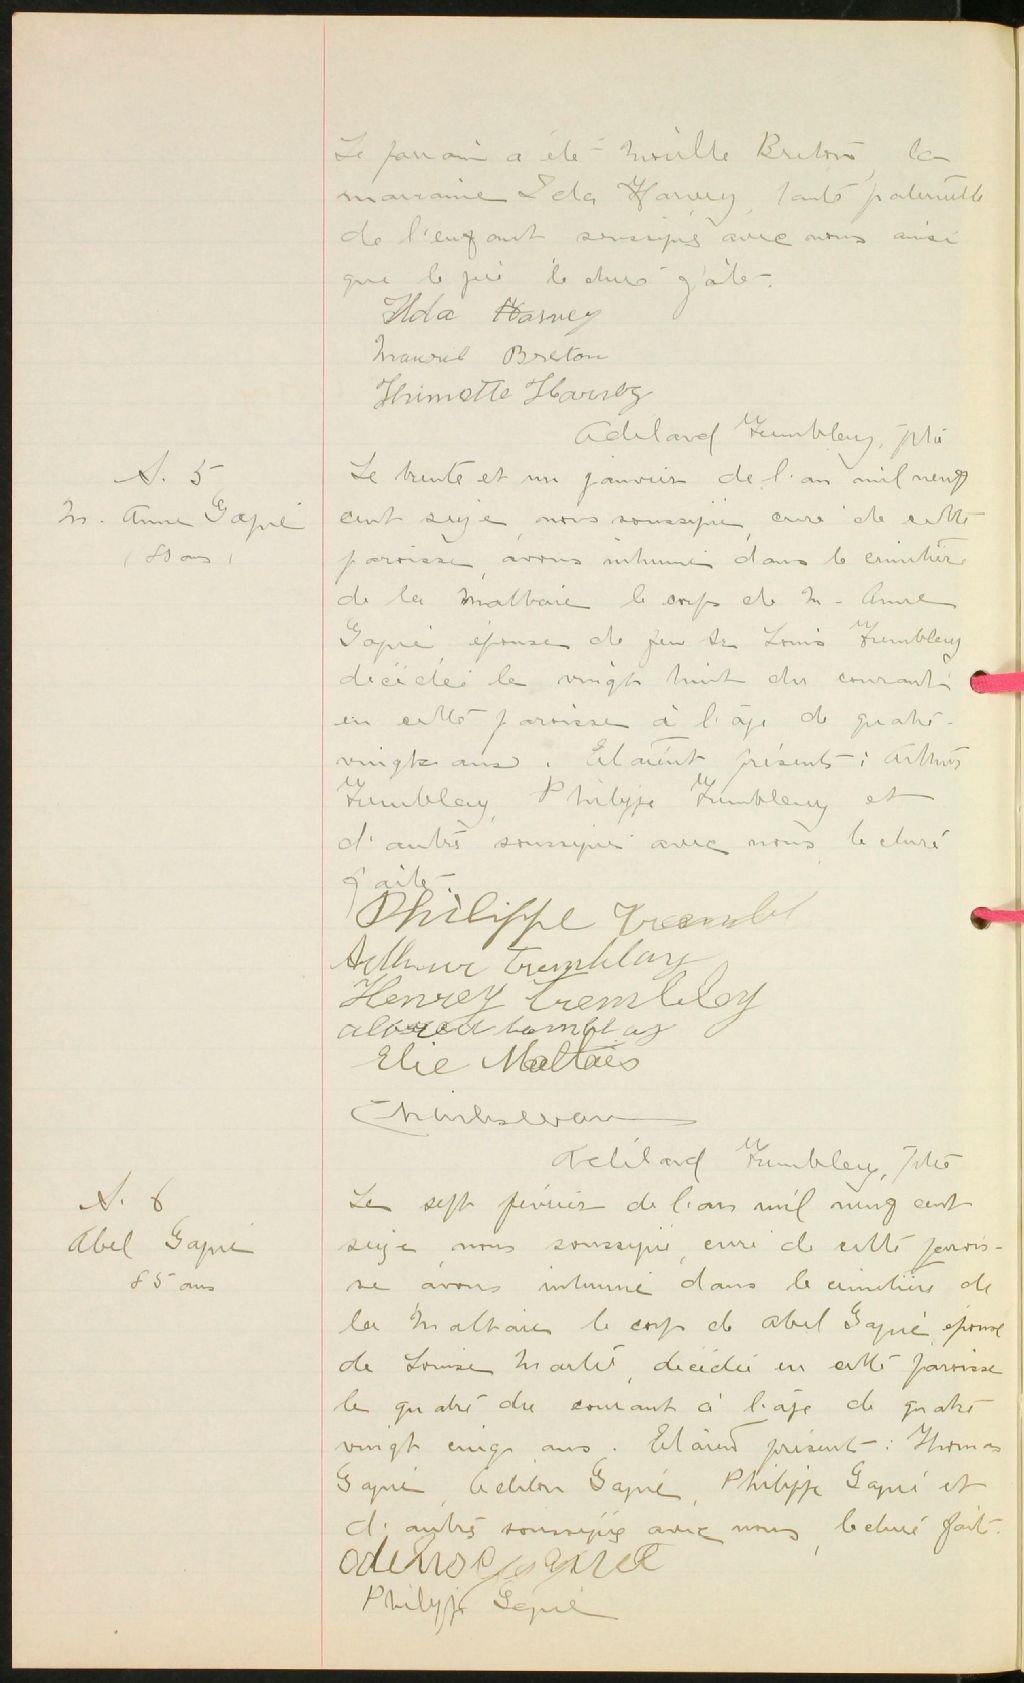 Le parrain a été Mville Breton, la
marraine Ida Harvey, tante paternelle
de l'enfant soussignés avec nous ainsi
que le père lecture faite.
Ilda Harvey
Mauril Breton
Harvey
Adélard Tremblay, ptre
S. 5
M. Anne Gagné
(80 ans)
Le trente et un janvier de l'an mil neuf
cent seize nous soussigné, curé de cette
paroisse, avons inhumé dans le cimetière
de la Malbaie le corps de M. Anne
Gagné épouse de feu Sr Louis Tremblay
décédée le vingt huit du courant
en cette paroisse à l'âge de quatre-
vingts ans. Etaient présents: Arthur
Tremblay, Philippe Tremblay et
d'autres soussignés avec nous, lecture
faite.
Philippe Trembl
Arthur Tremblay
Henrey Trembley
Elie Maltais
Adélard Tremblay, ptre
S. 6
Abel Gagné
85 ans
Le sept février de l'an mil neuf cent
seize nous soussigné, curé de cette parois-
se avons inhumé dans le cimetière de
la Malbaie le corps de Abel Gagné, époux
de Louise Martel, décédé en cette paroisse
le quatre du courant à l'âge de quatre
vingt cinq ans. Etaient présents: Thomas
Gagné, Gagné, Philippe Gagné et
d'autres soussignés avec nous, lecture faite.
Philippe Gagné